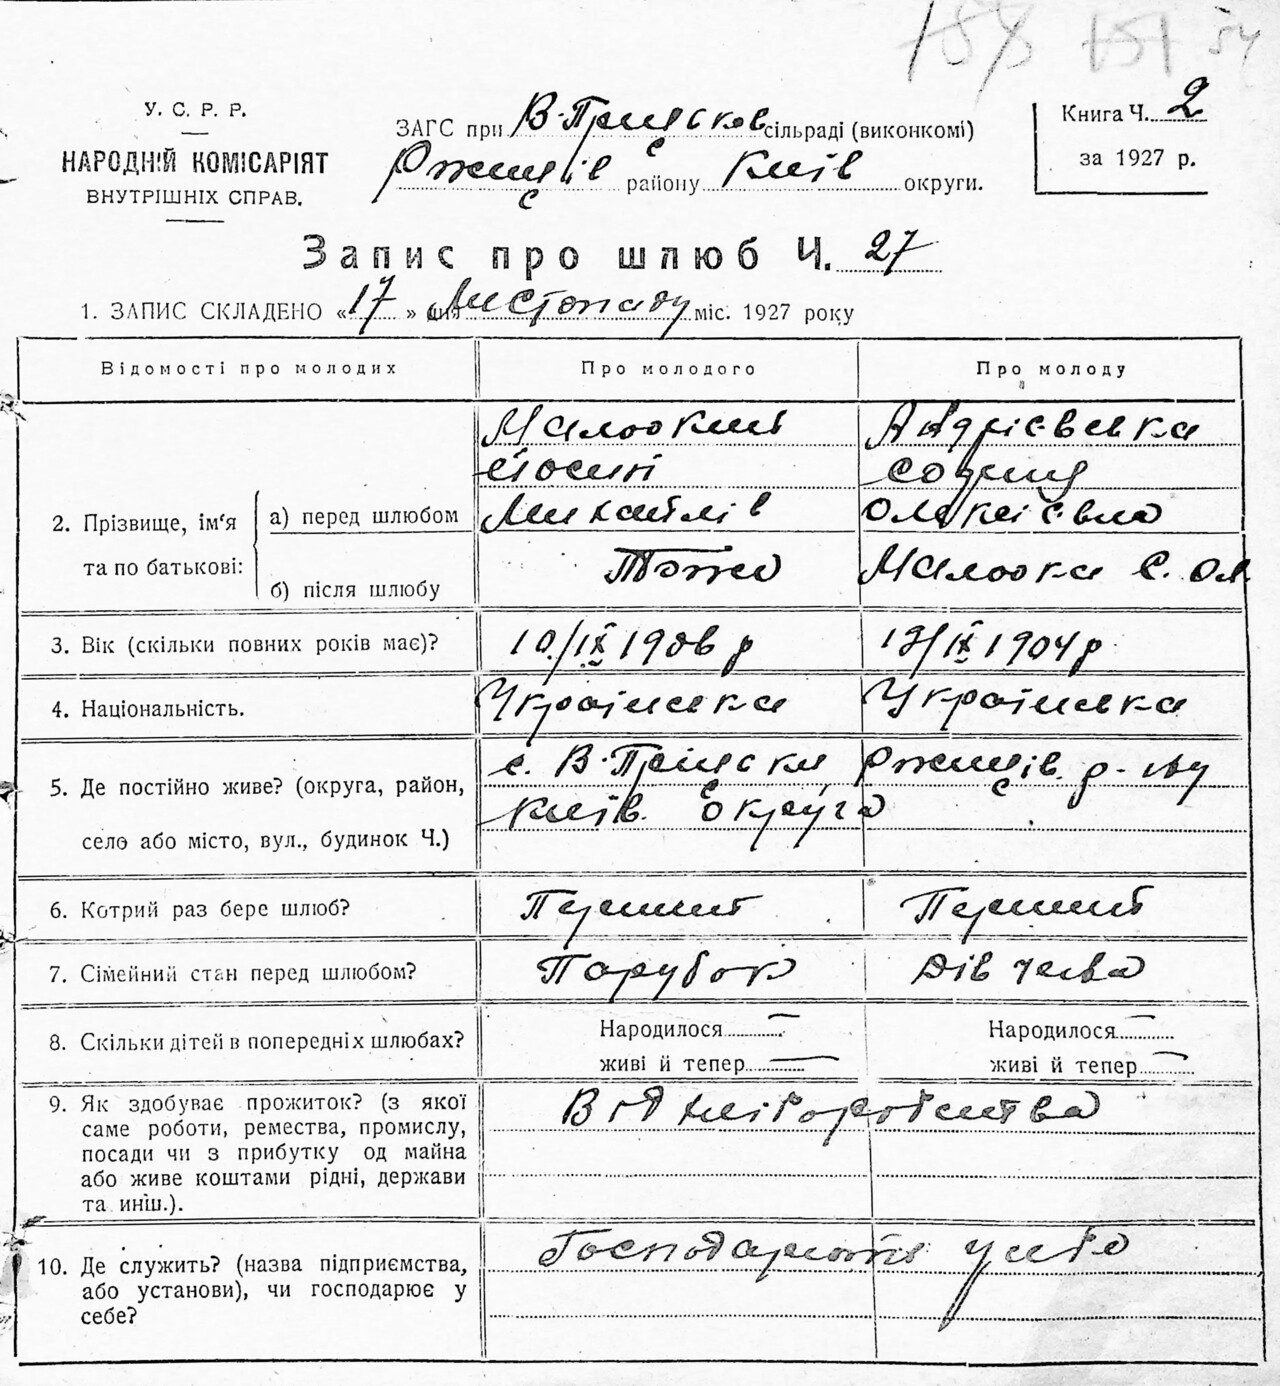 158 151 54
У. С. Р. Р.
НАРОДНІЙ КОМІСАРІЯТ
ВНУТРІШНІХ СПРАВ.
ЗАГС при В-Прицьков сільраді (виконкомі)
Ржищів району Київ округи.
Книга Ч. 2
за 1927 р.
Запис про шлюб Ч. 27
1. ЗАПИС СКЛАДЕНО «17» дня Листопаду міс. 1927 року
Відомості про молодих Про молодого Про молоду
2. Прізвище, ім‘я та по батькові:
а) перед шлюбом
Йосип
Михайлів
Андрієвська
София
Олексієвна
б) після шлюбу
Тоже
С. Ол.
3. Вік (скільки повних років має)? 10/IX 1906 р 1904 р
4. Національність. Українська Українська
5. Де постійно живе? (округа, район,
село або місто, вул., будинок Ч.)
с. В-Прицьки Ржищів. р-ну
Київ. округа
6. Котрий раз бере шлюб? Перший Перший
7. Сімейний стан перед шлюбом? Парубок Дівчина
8. Скільки дітей в попередніх шлюбах?
Народилося — Народилося —
живі й тепер — живі й тепер —
9. Як здобуває прожиток? (з якої
саме роботи, ремества, промислу,
посади чи з прибутку од майна
або живе коштами рідні, держави
та инш.).
Від хліборобства
10. Де служить? (назва підприємства,
або установи), чи господарює у
себе?